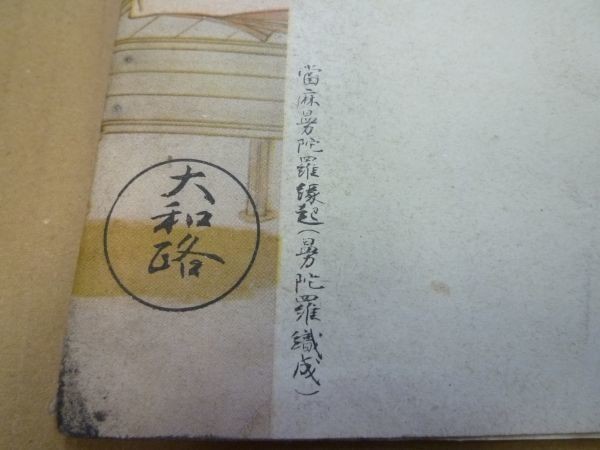 當麻曼陀羅縁起(曼陀羅織成)
大和路